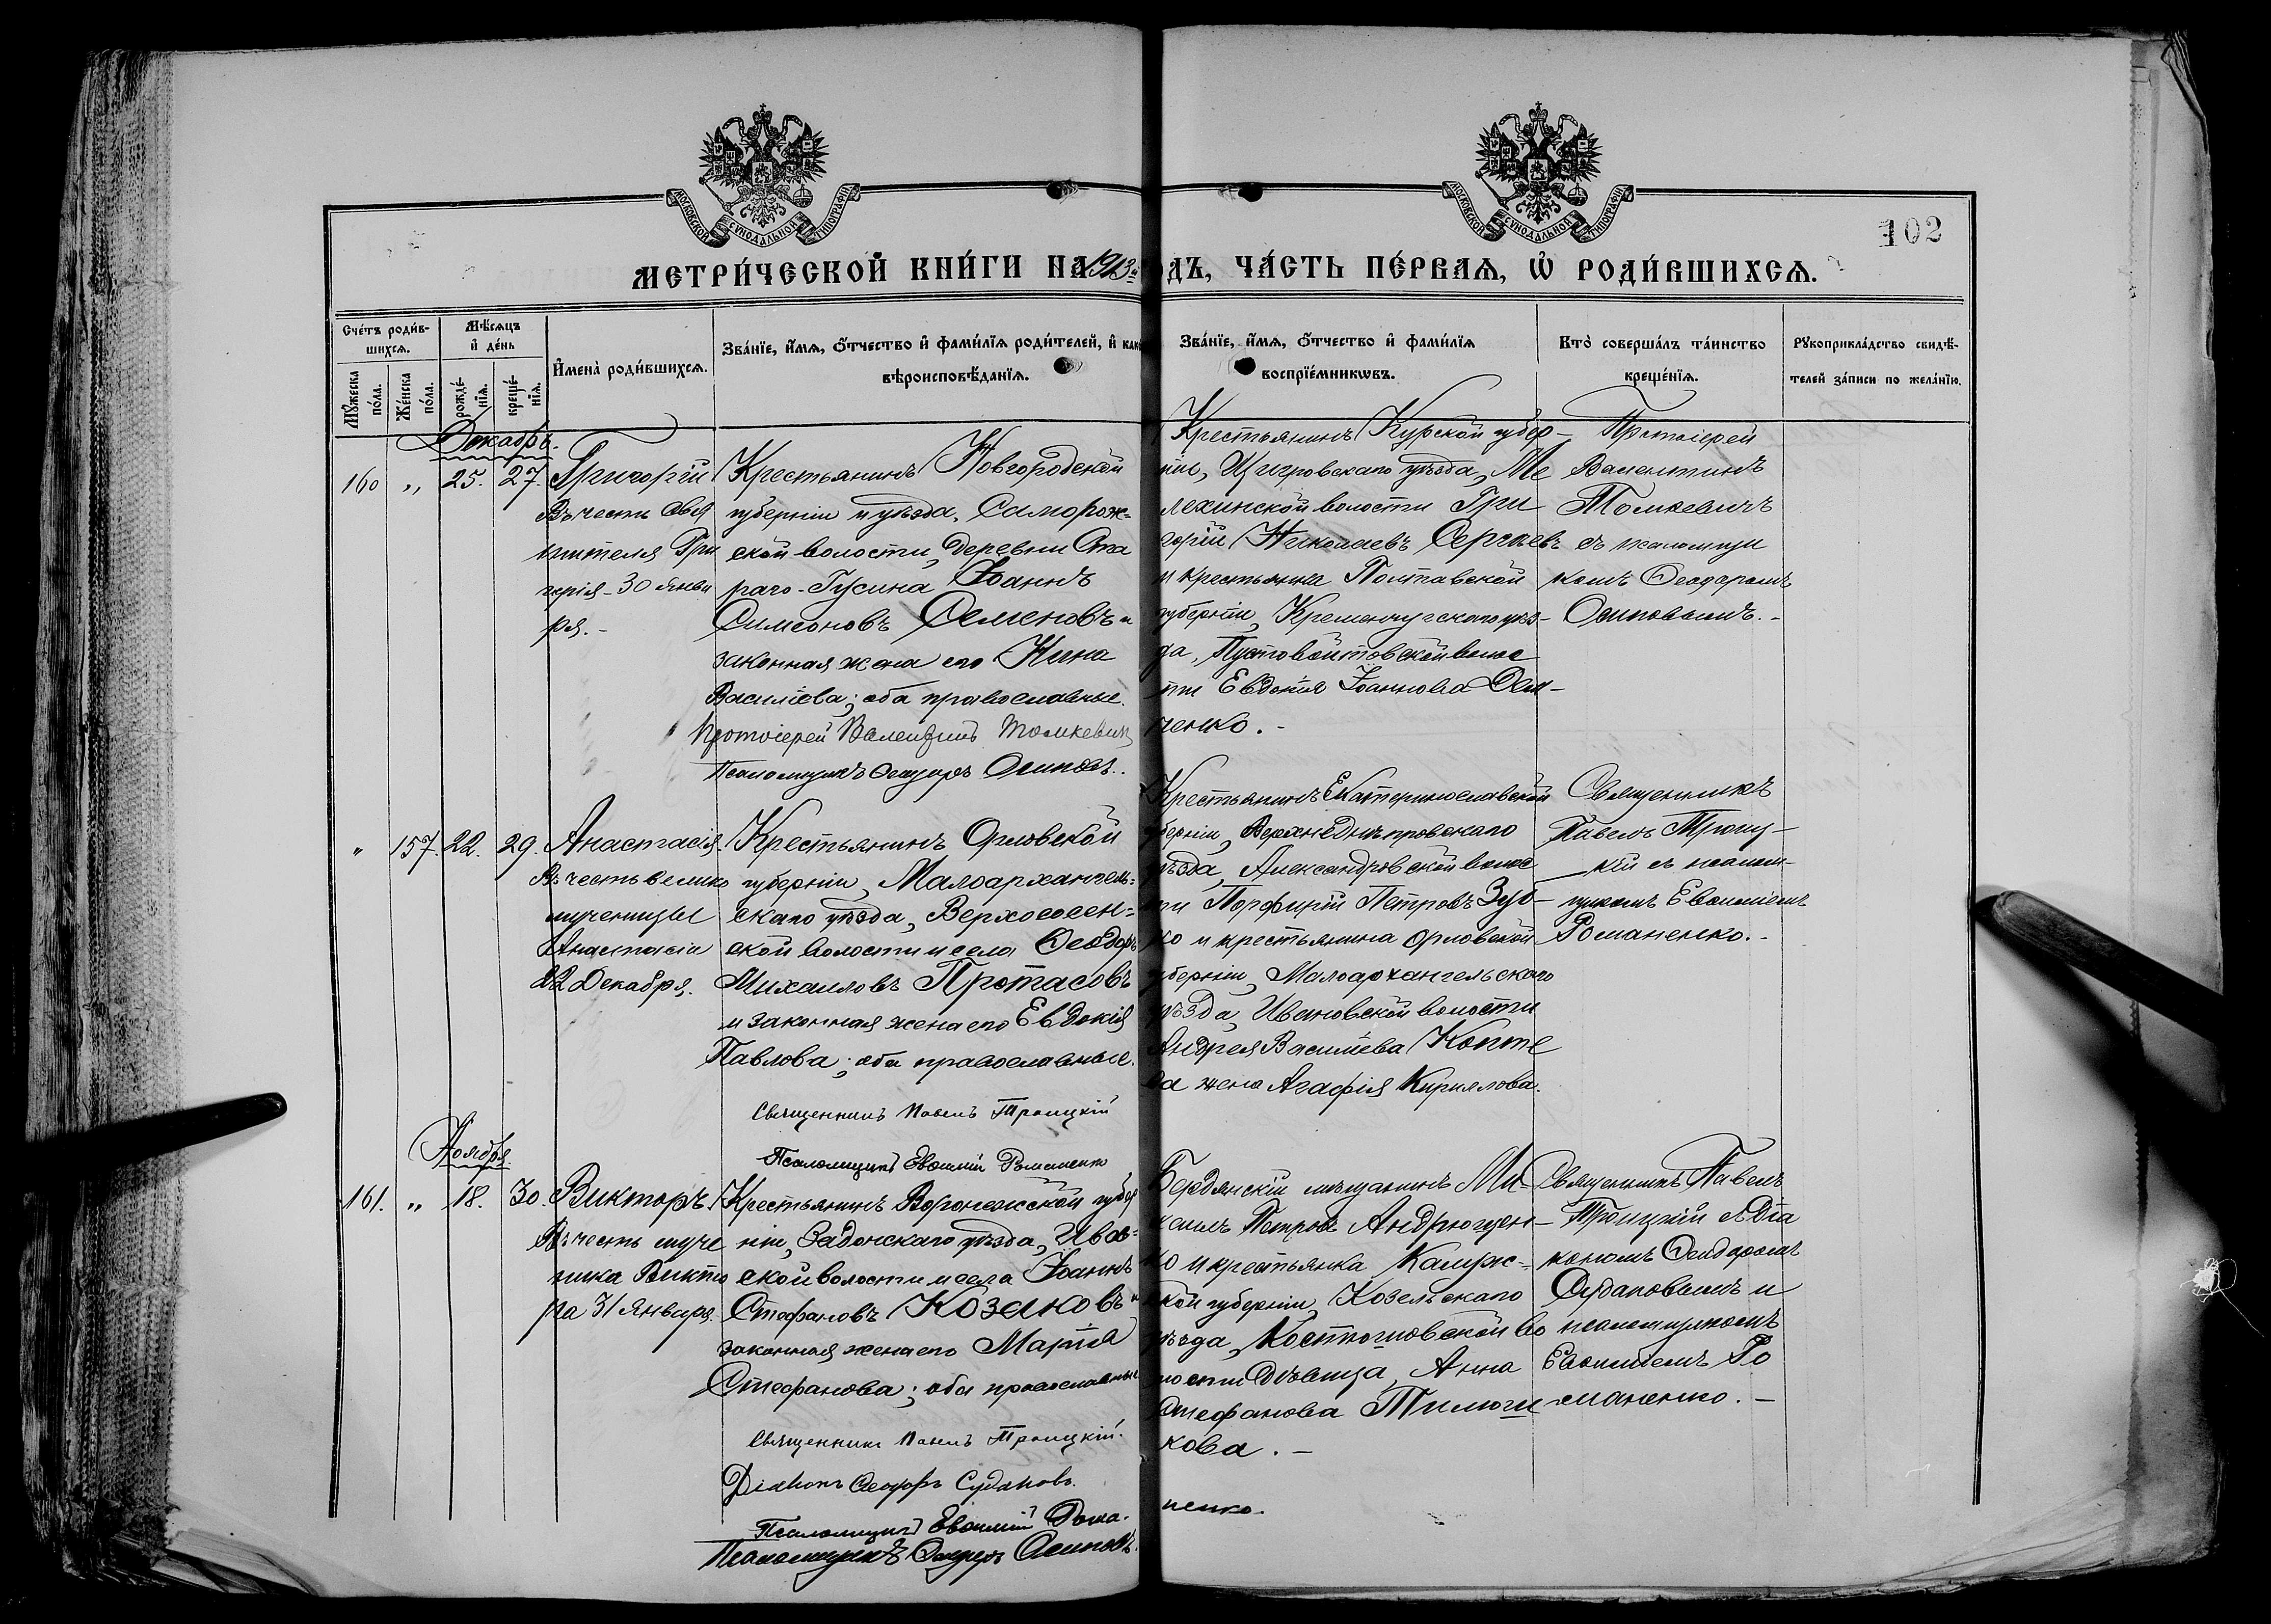 МОСКОВСКОЙ СѴНОДАЛЬНОЙ ТИПОГРАФІИ
МОСКОВСКОЙ СѴНОДАЛЬНОЙ ТИПОГРАФІИ
102
МЕТРИ́ЧЕСКОЙ КНИ́ГИ НА 1913й
ДЪ, ЧА́СТЬ ПЕ́РВАѦ, Ѡ҆ РОДИ́ВШИХСѦ.
Сче́тъ роди́в-
шихсѧ.
Мꙋ́жеска по́ла.
Же́нска по́ла.
Мѣ́сѧцъ
и҆ де́нь
рожде́-
нїѧ.
креще́-
нїѧ.
И҆мена̀ роди́вшихсѧ.
Зва́нїе, и҆́мѧ, ѻ҆́тчество и҆ фами́лїѧ роди́телей, и҆ как
вѣроисповѣ́данїѧ.
Зва́нїе, и҆́мѧ, ѻ҆́тчество и҆ фами́лїѧ
воспрїе́мникѡвъ.
Кто̀ соверша́лъ та́инство
креще́нїѧ.
Рꙋкоприкла́дство свидѣ́-
телей за́писи по жела́нїю.
Декабрь.
160 „ 25. 27.
Григорій
Въ честь Свя
тителя Гри
горія - 30 Янва
ря. -
Крестьянинъ Новгородской
губерніи и уѣзда, Саморож-
ской волости, деревни Ста
раго-Гусина Іоаннъ
Симеоновъ Семеновъ и
законная жена его Нина
Василіева; оба православные.
Протоіерей Валентинъ Томкевичъ
Псаломщикъ Ѳеодоръ Осиповъ.
Крестьянинъ Курской губер-
ніи, Щигровскаго уѣзда, Ме
лехинской волости Гри
горій Николаевъ Сергѣевъ
и крестьянка Полтавской
губерніи, Кременчугскаго уѣз-
да, Пустовойтовской волос
ти Евдокія Іоаннова Дем-
ченко. -
Протоіерей
Валентинъ
Томкевичъ
съ псаломщи
комъ Ѳеодоромъ
Осиповымъ. -
„ 157. 22. 29.
Анастасія.
Въ честь велико
мученицы
Анастасіи
22 Декабря.
Крестьянинъ Орловской
губерніи, Малоархангель-
скаго уѣзда, Верхососен-
ской волости и села Ѳеодоръ
Михаиловъ Протасовъ
и законная жена его Евдокія
Павлова; оба православные.
Священникъ Павелъ Троицкій
Псаломщикъ Евѳимій Романенко
Крестьянинъ Екатеринославской
губерніи, Верхнеднѣпровскаго
уѣзда, Александровской волос
ти Порфирій Петровъ Зуб-
ко и крестьянина Орловской
губерніи, Малоархангельскаго
уѣзда, Ивановской волости
Андрея Василіева Копте
ва жена Агафія Кириллова.
Священникъ
Павелъ Троиц-
кій съ псалом-
щикомъ Евѳиміемъ
Романенко. -
Ноябрь
161. „ 18. 30.
Викторъ.
Въ честь муче
ника Викто
ра 31 Января.
Крестьянинъ Воронежской губер
ніи, Задонскаго уѣзда,
ской волости и села Іоаннъ
Стефановъ Козаковъ и
законная жена его Марія
Стефанова; оба православные
Священникъ Павелъ Троицкій.
Діаконъ Ѳеодоръ Судаковъ.
Псаломщикъ Евѳимій Рома-
ненко.
Псаломщикъ Ѳеодоръ Осиповъ.
Бердянскій мѣщанинъ Ми-
хаилъ Петровъ Андрющен-
ко и крестьянка Калуж-
ской губерніи, Козельскаго
уѣзда, Костюшовской во
лости дѣвица, Анна
Стефанова
кова. -
Священникъ Павелъ
Троицкій съ Діа
кономъ Ѳеодоромъ
Судаковымъ и
псаломщикомъ
Евѳиміемъ Ро
маненко. -